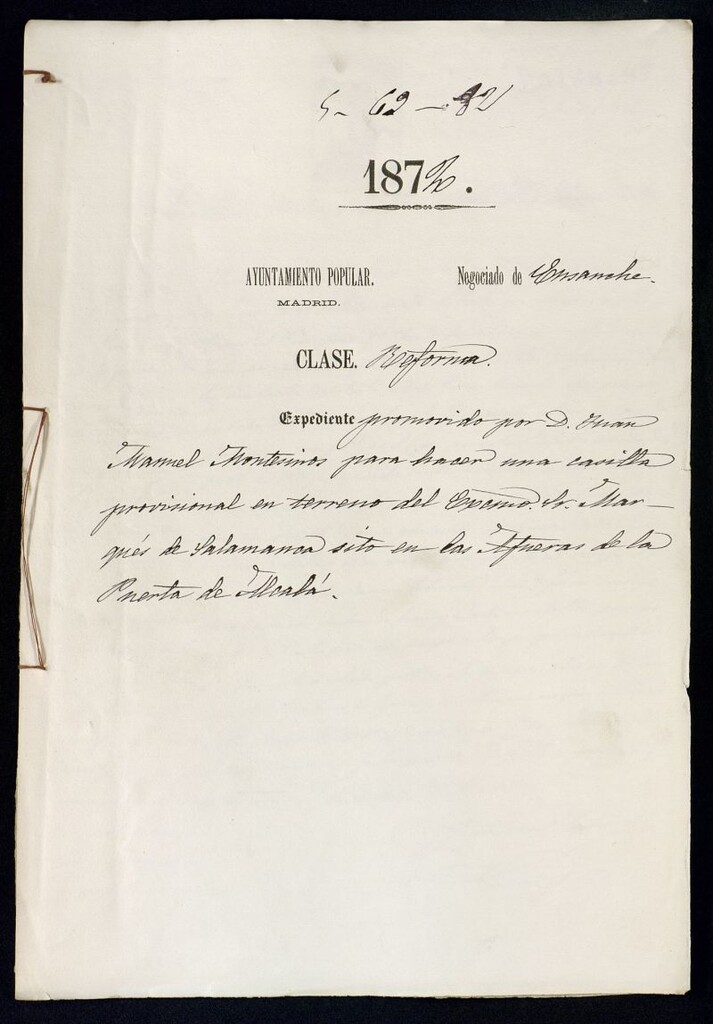 5-69-82
1872.
AYUNTAMIENTO POPULAR. Negociado de Ensanche.
MADRID.
CLASE. Reforma.
Expediente promovido por D. Juan
Manuel Montesinos para hacer una casilla
provisional en terreno del Excmo. Sr. Mar-
qués de Salamanca sito en las Afueras de la
Puerta de Alcalá.